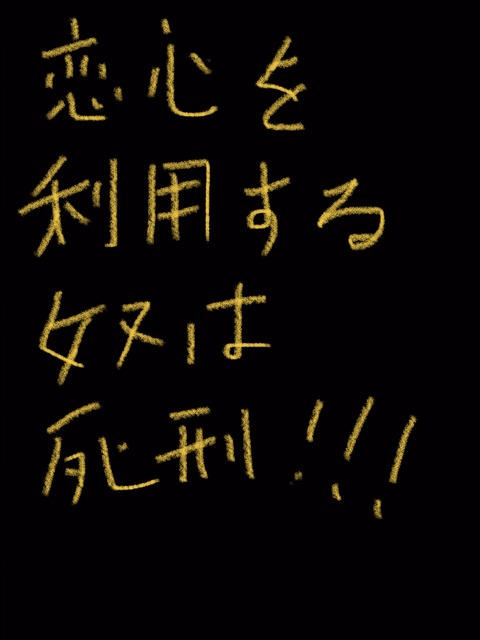 恋心を
利用する
奴は
死刑!!!